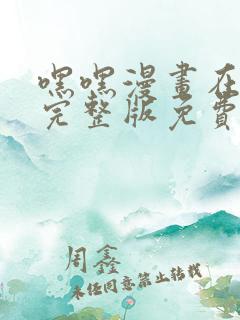 嘿嘿漫畫在
完整版免費
周鑫
未经同意禁止转载